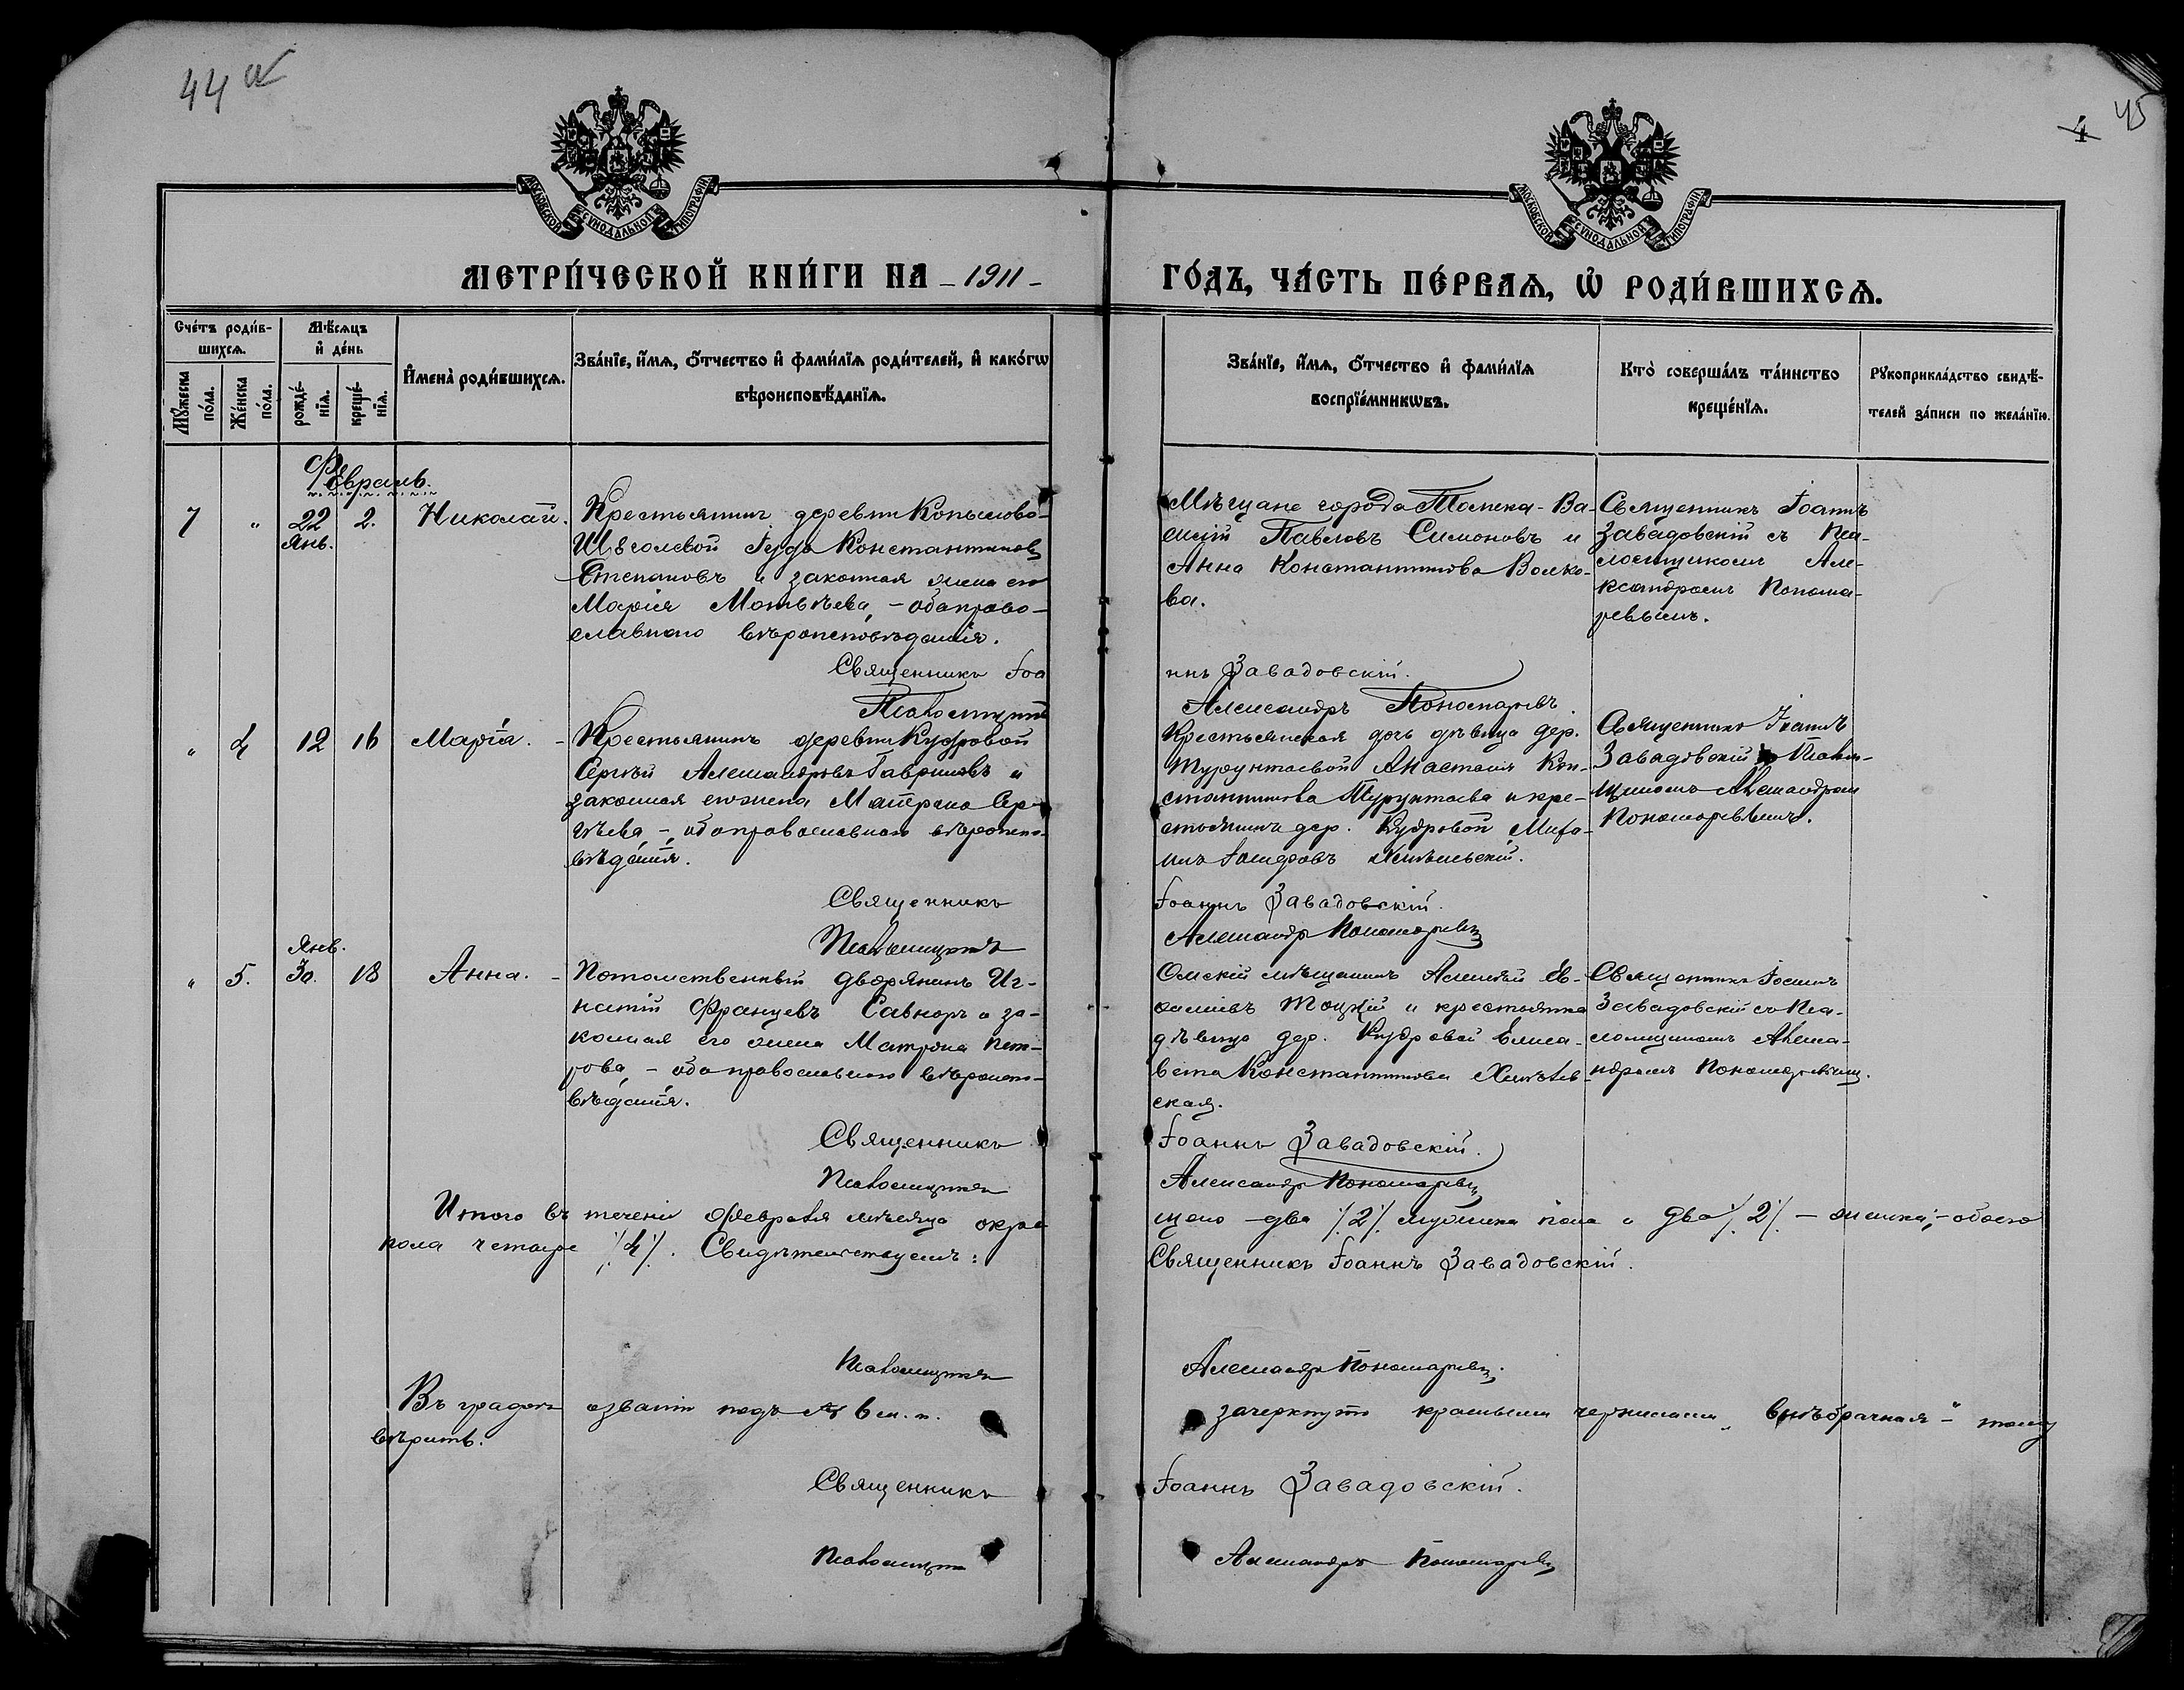 44 об
4 45
МОСКОВСКОЙ СѴНОДАЛЬНОЙ ТИПОГРАФІИ.
МОСКОВСКОЙ СѴНОДАЛЬНОЙ ТИПОГРАФІИ.
МЕТРИ́ЧЕСКОЙ КНИ́ГИ НА -1911-
ГО́ДЪ, ЧА́СТЬ ПЕ́РВАѦ, Ѡ҆ РОДИ́ВШИХСѦ.
Сче́тъ роди́в-
шихсѧ.
Мꙋ́жеска
по́ла.
Же́нска
по́ла.
Мѣ́сѧцъ
и҆ де́нь
рожде́-
нїѧ.
креще́-
нїѧ.
И҆мена̀ роди́вшихсѧ.
Зва́нїе, и҆́мѧ, ѻ҆́тчество и҆ фами́лїѧ роди́телей, и҆ како́гѡ
вѣроисповѣ́данїѧ.
Зва́нїе, и҆́мѧ, ѻ҆́тчество и҆ фами́лїѧ
воспрїе́мникѡвъ.
Кто̀ соверша́лъ та́инство
креще́нїѧ.
Рꙋкоприкла́дство свидѣ́-
телей за́писи по жела́нїю.
Февраль.
7 " 22 2. Николай.
Янв.
Крестьянинъ деревни Копылово-
Щеголевой Іуда Константиновъ
Степановъ и законная жена его
Марія Матвѣева, - оба право-
славнаго вѣроисповѣданія.
Мѣщане города Томска - Ва-
силій Павловъ Симоновъ и
Анна Константинова Волко-
ва.
Священникъ Іоаннъ
Завадовскій съ Пса-
ломщикомъ Але-
ксандромъ Понома-
ревымъ.
Священникъ Іоа
ннъ Завадовскій.
Псаломщикъ
Александръ Пономаревъ.
" 4 12 16 Марія. -
Крестьянинъ деревни Кудровой
Сергѣй Александровъ Гавриловъ и
законная его жена Матрона Сер-
гѣева, - оба православнаго вѣроиспо-
вѣданія.
Крестьянская дочь дѣвица дер.
Турунтаевой Анастасія Кон-
стантинова Турунтаева и кре-
стьянинъ дер. Кудровой Миха-
илъ
Священникъ Іоаннъ
Завадовскій съ Псалом-
щикомъ Александромъ
Пономаревымъ.
Священникъ
Іоаннъ Завадовскій.
Псаломщикъ
Александръ Пономаревъ
Янв.
" 5. 30. 18 Анна. -
Потомственный дворянинъ Иг-
натій Францевъ Савкоръ и за-
конная его жена Матрона Пет-
рова, - оба православнаго вѣроиспо-
вѣданія.
Омскій мѣщанинъ Алексѣй
Тоцкій и крестьянка
дѣвица дер. Кудровой Елиса-
вета Константинова Хмѣлев-
ская.
Священникъ Іоаннъ
Завадовскій съ Пса-
ломщикомъ Алекса-
ндромъ Пономаревымъ.
Священникъ
Іоаннъ Завадовскій.
Псаломщикъ
Александръ Пономаревъ
Итого въ теченіи Февраля мѣсяца окре
щено - два ⁒2⁒ мужска пола и два ⁒2⁒ - женска, - обоего
пола четыре ⁒4⁒. Свидѣтельствуемъ:
Священникъ Іоаннъ Завадовскій.
Псаломщикъ
Александръ Пономаревъ.
Въ графѣ званіи подъ № 6 м. п.
зачеркнуто красными чернилами „внѣбрачная" - тому
вѣрить.
Священникъ
Іоаннъ Завадовскій.
Псаломщикъ
Александръ Пономаревъ